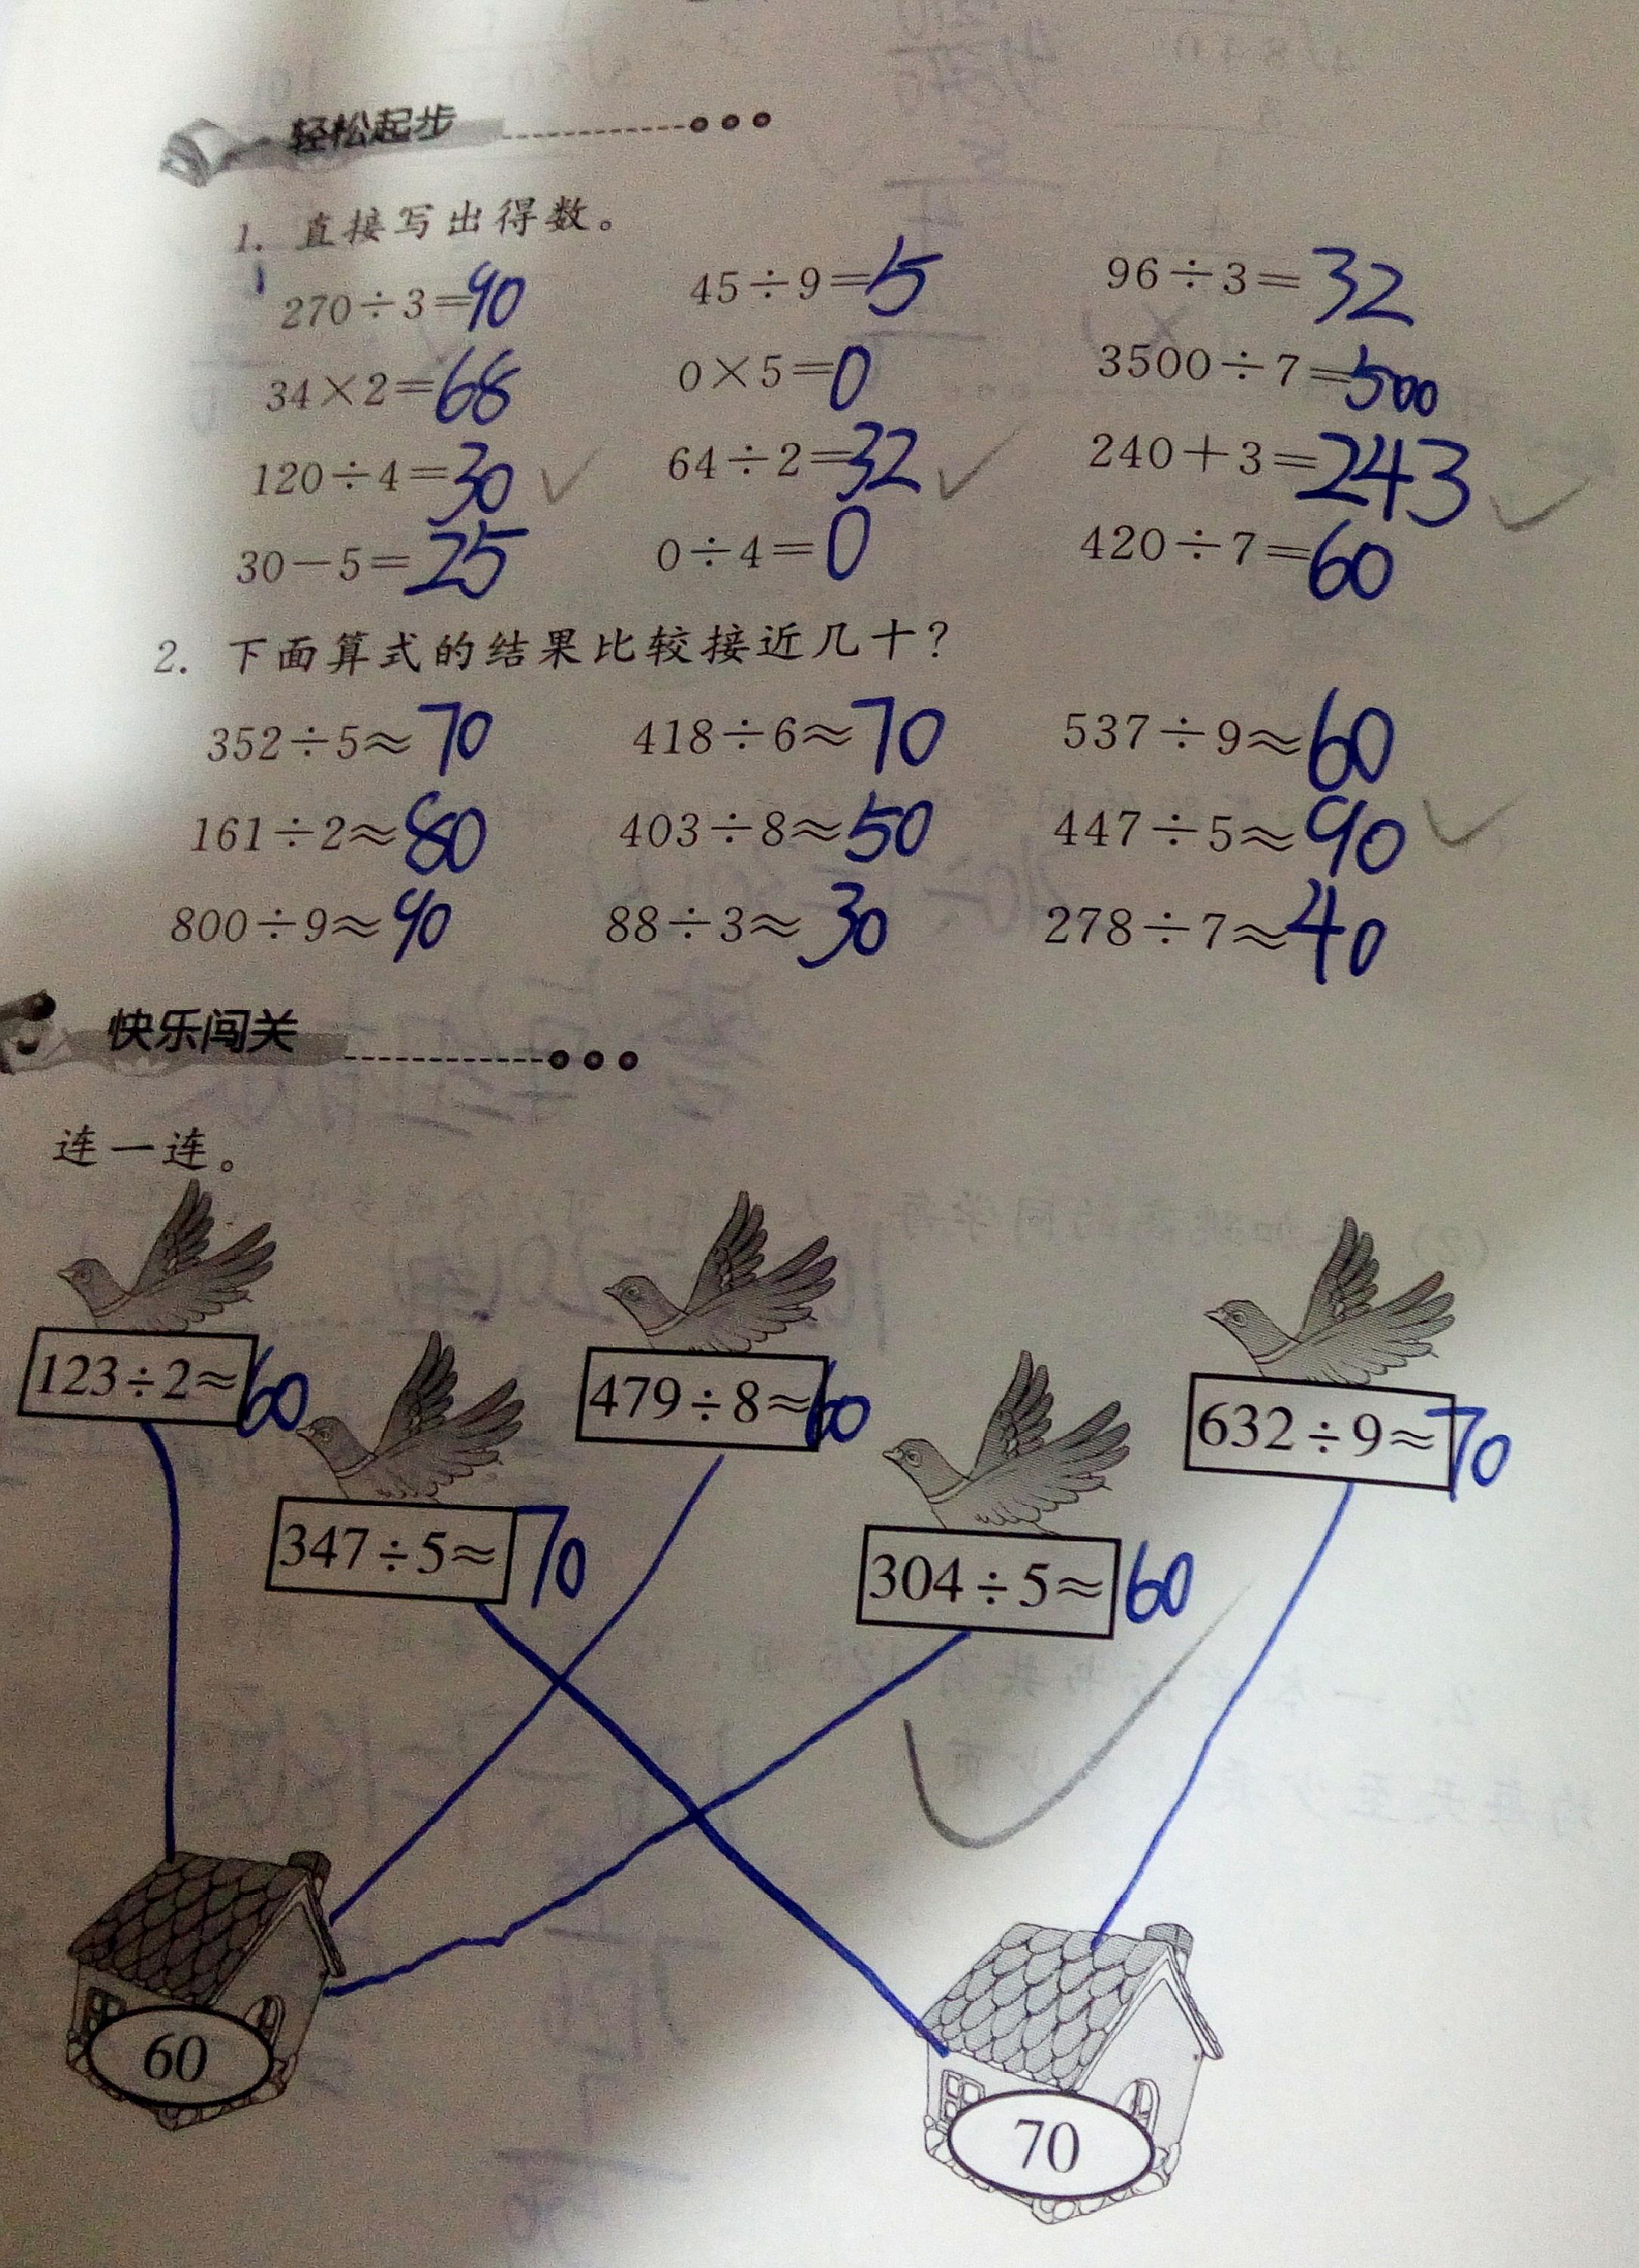 轻松起步
1. 直接写出得数。
270÷3=90 45÷9=5 96÷3=32
34×2=68 0×5=0 3500÷7=500
120÷4=30 64÷2=32 240+3=243
30-5=25 0÷4=0 420÷7=60
2. 下面算式的结果比较接近几十?
352÷5≈70 418÷6≈70 537÷9≈60
161÷2≈80 403÷8≈50 447÷5≈90
800÷9≈90 88÷3≈30 278÷7≈40
快乐闯关
连一连。
123÷2≈60 479÷8≈60 632÷9≈70
347÷5≈70 304÷5≈60
60 70